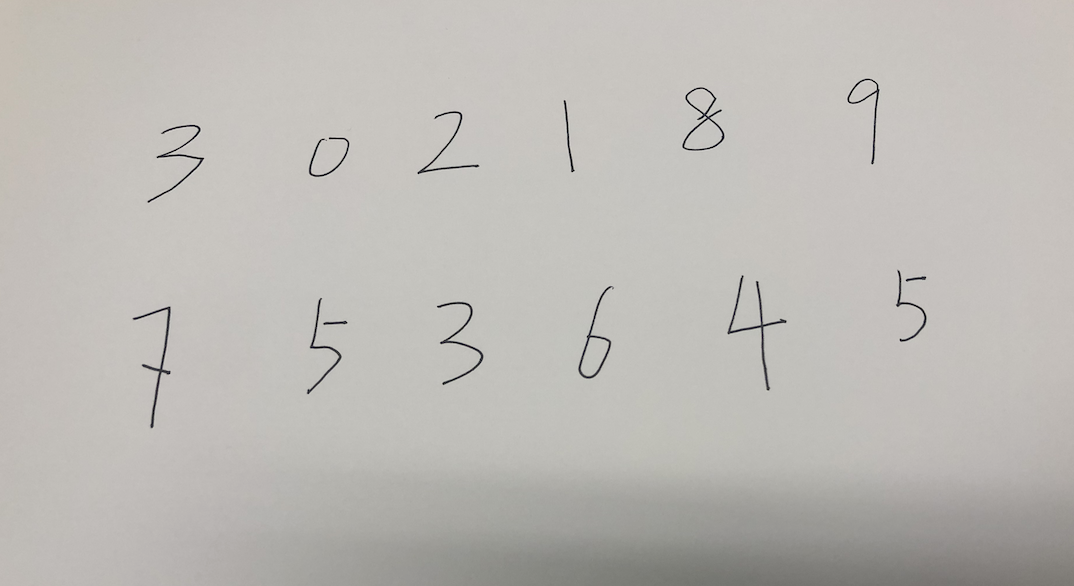 3 0 2 1 8 9
7 5 3 6 4 5